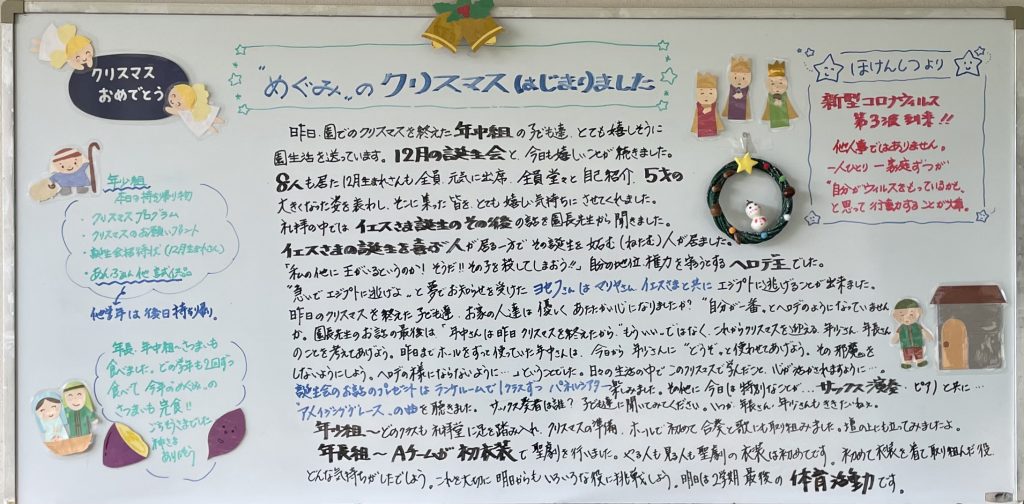 クリスマス
おめでとう
"めぐみ"の クリスマス はじまりました
ほけんしつより
新型コロナウィルス
第3波到来!!
他人事ではありません。
一人ひとり 一家庭ずつが
"自分がウィルスをもっているかも、
と思って行動することが大事。
年少組
今日の持ち帰り物
・クリスマスプログラム
・クリスマスのお願いプリント
・誕生会招待状(12月生まれさん)
・あんふぁん他 試供品
他学年は後日持ち帰り。
年長、年中組〜さつまいも
食べました。どの学年も2回ずつ
食べて 今年の"めぐみ"の
さつまいも 完食!!
ごちそうさまでした
神さま
ありがとう
昨日、園でのクリスマスを終えた 年中組の子ども達、とても嬉しそうに
園生活を送っています。12月の誕生会と、今日も嬉しいことが続きました。
8人も居た12月生まれさんも全員、元気に出席、全員堂々と自己紹介、5才の
大きくなった姿を表わし、そこに集った皆を、とても嬉しい気持ちにさせてくれました。
礼拝の中では イエスさま誕生のその後の話を園長先生から聞きました。
イエスさまの誕生を喜ぶ人が居る一方で その誕生を妬む(ねたむ)人が居ました。
「私の他に王がいるというのか!そうだ!!その子を殺してしまおう!!」自分の地位、権力を守ろうとするヘロデ王でした。
"急いでエジプトに逃げよ"と夢でお知らせを受けた ヨセフさんは マリヤさん、イエスさまと共に エジプトに逃げることが出来ました。
昨日のクリスマスを終えた子ども達、お家の人達は 優しく、あたたかい心になりましたか?"自分が一番"とヘロデのようになっていません
か。園長先生のお話の最後は「年中さんは昨日クリスマスを終えたから"もういい"ではなく、これからクリスマスを迎える、年少さん、年長さん
のことを考えてあげよう。昨日までホールをずっと使っていた年中さんは、今日から 年少さんに"どうぞ"と使わせてあげよう。その邪魔を
しないようにしよう。ヘロデの様にならないように…」というお話でした。日々の生活の中で このクリスマスで学んだこと、心が活かされますように…。
誕生会のお話のプレゼントは ランチルームで1クラスずつ パネルシアター楽しみました。その他に 今日は特別なことが…サックス演奏、ピアノと共に…
"アメイジンググレース"の曲を聴きました。サックス奏者は誰?子ども達に聞いてみてください。いつか、年長さん、年少さんもききたいねぇ。
年少組〜どのクラスも 礼拝堂に足を踏み入れ、クリスマスの準備、ホールで初めて合奏と歌にも取り組みました。壇の上にも立ってみましたよ。
年長組〜Aチームが 初衣装で聖劇を行いました。やる人も見る人も聖劇の衣装は初めてです。初めて衣装を着て取り組んだ役、
どんな気持ちがしたでしょう。これを大切に明日からも いろいろな役に挑戦しよう。明日は2学期 最後の 体育活動です。